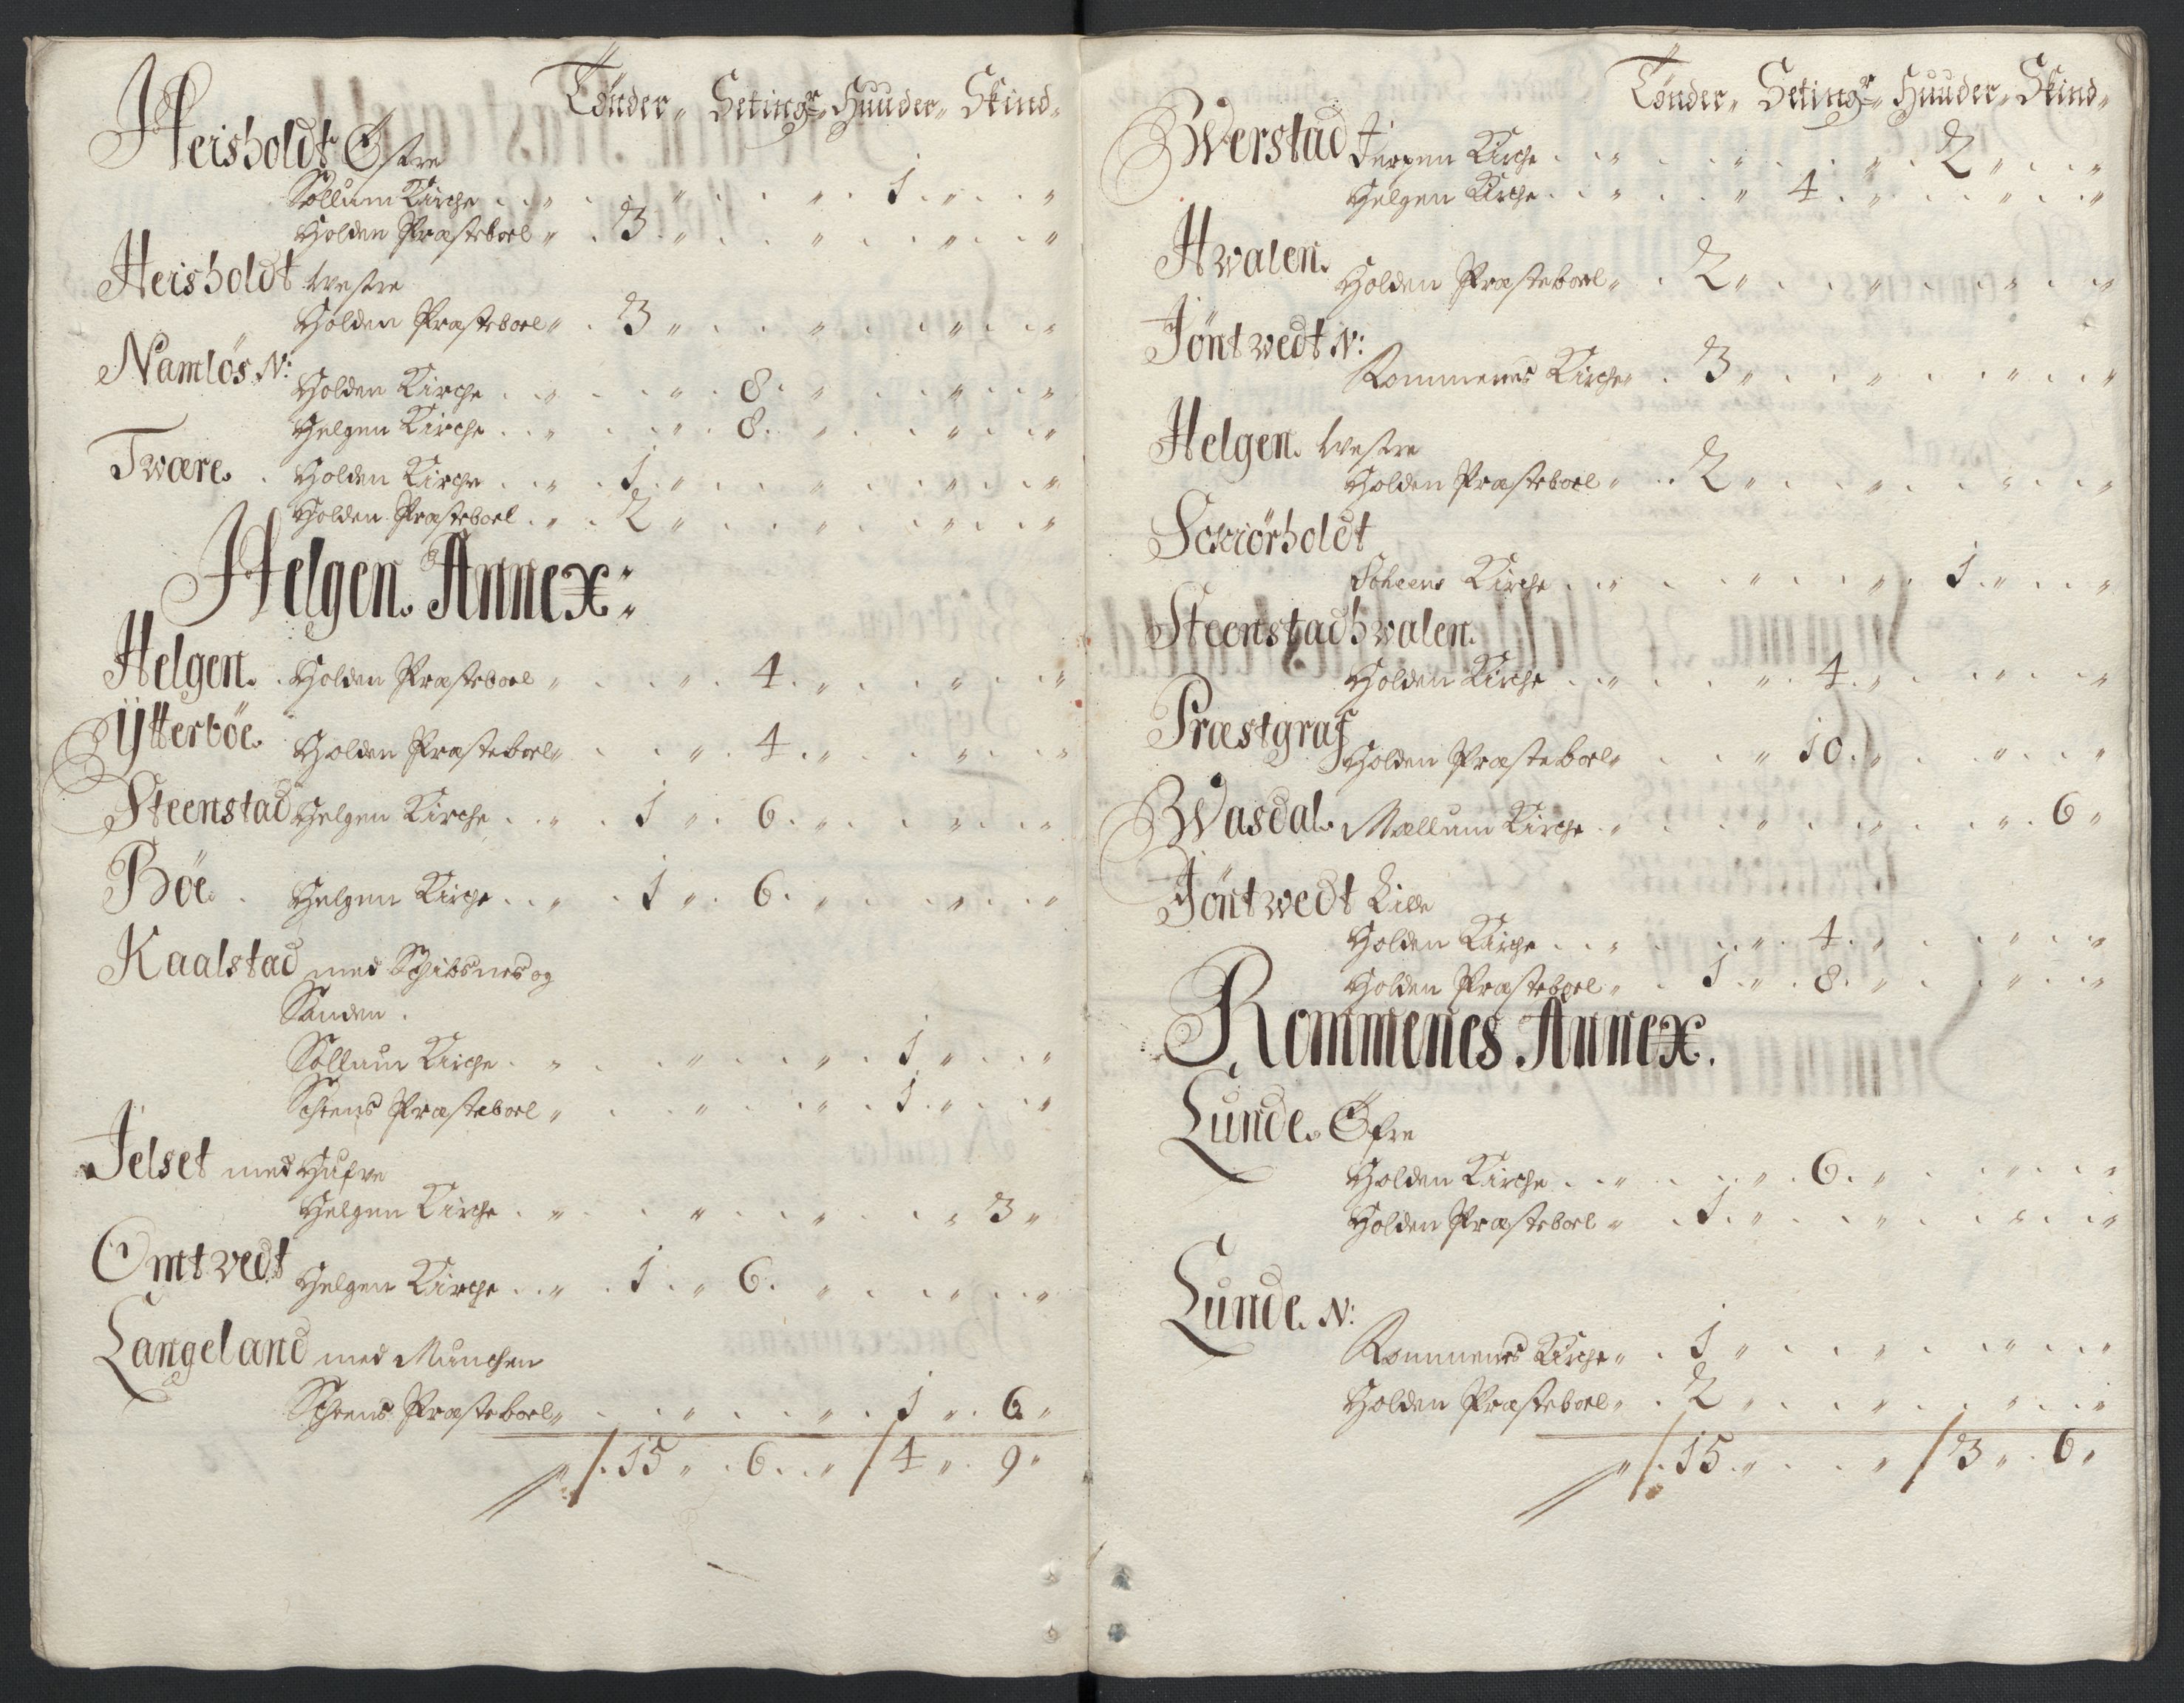 Tønder„ Setingr„ Huuder„ Skind„
Heisholdt Østre
Sollum Kirche . . „ . . . „ . . . „ . 1 . „ . . . „
Holden Præsteboel „ . 3 „ . . . „ . . . „ . . . „
Heisholdt Westre
Holden Præsteboel „ . 3 „ . . . „ . . . „ . . . „
Namløs N:
Holden Kirche . . „ . . . „ . 8 . „ . . . „ . . . „
Helgen Kirche . . „ . . . „ . 8 . „ . . . „ . . . „
Tvære. . Holden Kirche . . „ . 1 . „ . . . „ . . . „ . . . „
Holden Præsteboel . „ . 2 „ . . . „ . . . „ . . . „
Helgen Annex:
Helgen. . Holden Præsteboel „ . . . „ . 4 . „ . . . „ . . . „
Ytterböe. Holden Præsteboel „ . . . „ . 4 . „ . . . „ . . . „
Steenstad Helgen Kirche . . „ . 1 „ . 6 . „ . . . „ . . . „
Böe. . Helgen Kirche . . „ . 1 „ . 6 . „ . . . „ . . . „
Kaalstad med Schibsnes og
Sanden .
Sollum Kirche . „ . . . „ . . . „ . 1 „ . . . „
Schiens Præsteboel „ . . . „ . . . „ . 1 . „ . . . „
Jelset med Hufve
Helgen Kirche . „ . . . „ . . . „ . . . „ 3 „
Omtvedt Helgen Kirche . . „ . 1 . „ 6 . „ . . . „ . . . „
Langeland med Munchen
Schiens Præsteboel „ . . . „ . . . „ . 1 „ . 6 „
„ / . 15 „ . 6 . . „ / 4 „ . 9 „
Tønder„ Setingr„ Huuder„ Skind„
Bwerstad Jerpen Kirche . . „ . . . „ . . . „ . 2 „ . . . „
Helgen Kirche . . „ . . . „ 4 . „ . . . „ . . . „
Hwalen. Holden Præsteboel „ . 2 „ . . . „ . . . „ . . . „
Jöntvedt N:
Rommenes Kirche „ . 3 „ . . . „ . . . „ . . . „
Helgen. Westre
Holden Præsteboel „ . . 2 „ . . . „ . . . „ . . . „
Sckiörholdt
Kirche . . „ . . . „ . . . „ . 1 . „ . . . „
Steenstadhvalen.
Holden Kirche . . „ . . . „ . 4 . „ . . . „ . . . „
Præstgraf Holden Præsteboel „ . . . „ 10 . „ . . . „ . . . „
Bwasdal. Mællum Kirche . „ . . . „ . . . „ . . . „ . 6 „
Jöntvedt Lille
Holden Kirche . . „ . . . „ . 4 . „ . . . „ . . . „
Holden Præsteboel „ . 1 . „ . 8 . „ . . . „ . . . „
Rommenes Annex.
Lunde. Øfre
Holden Kirche . . „ . . . „ . 6 . „ . . . „ . . . „
Holden Præsteboel „ . 1 . „ . . . „ . . . „ . . . „
Lunde. N:
Rommenes Kirche „ . 1 „ . . . „ . . . „ . . . „
Holden Præsteboel „ . 2 „ . . . „ . . . „ . . . „
„ / . 15 . „ . . . „ / 3 „ . 6 „